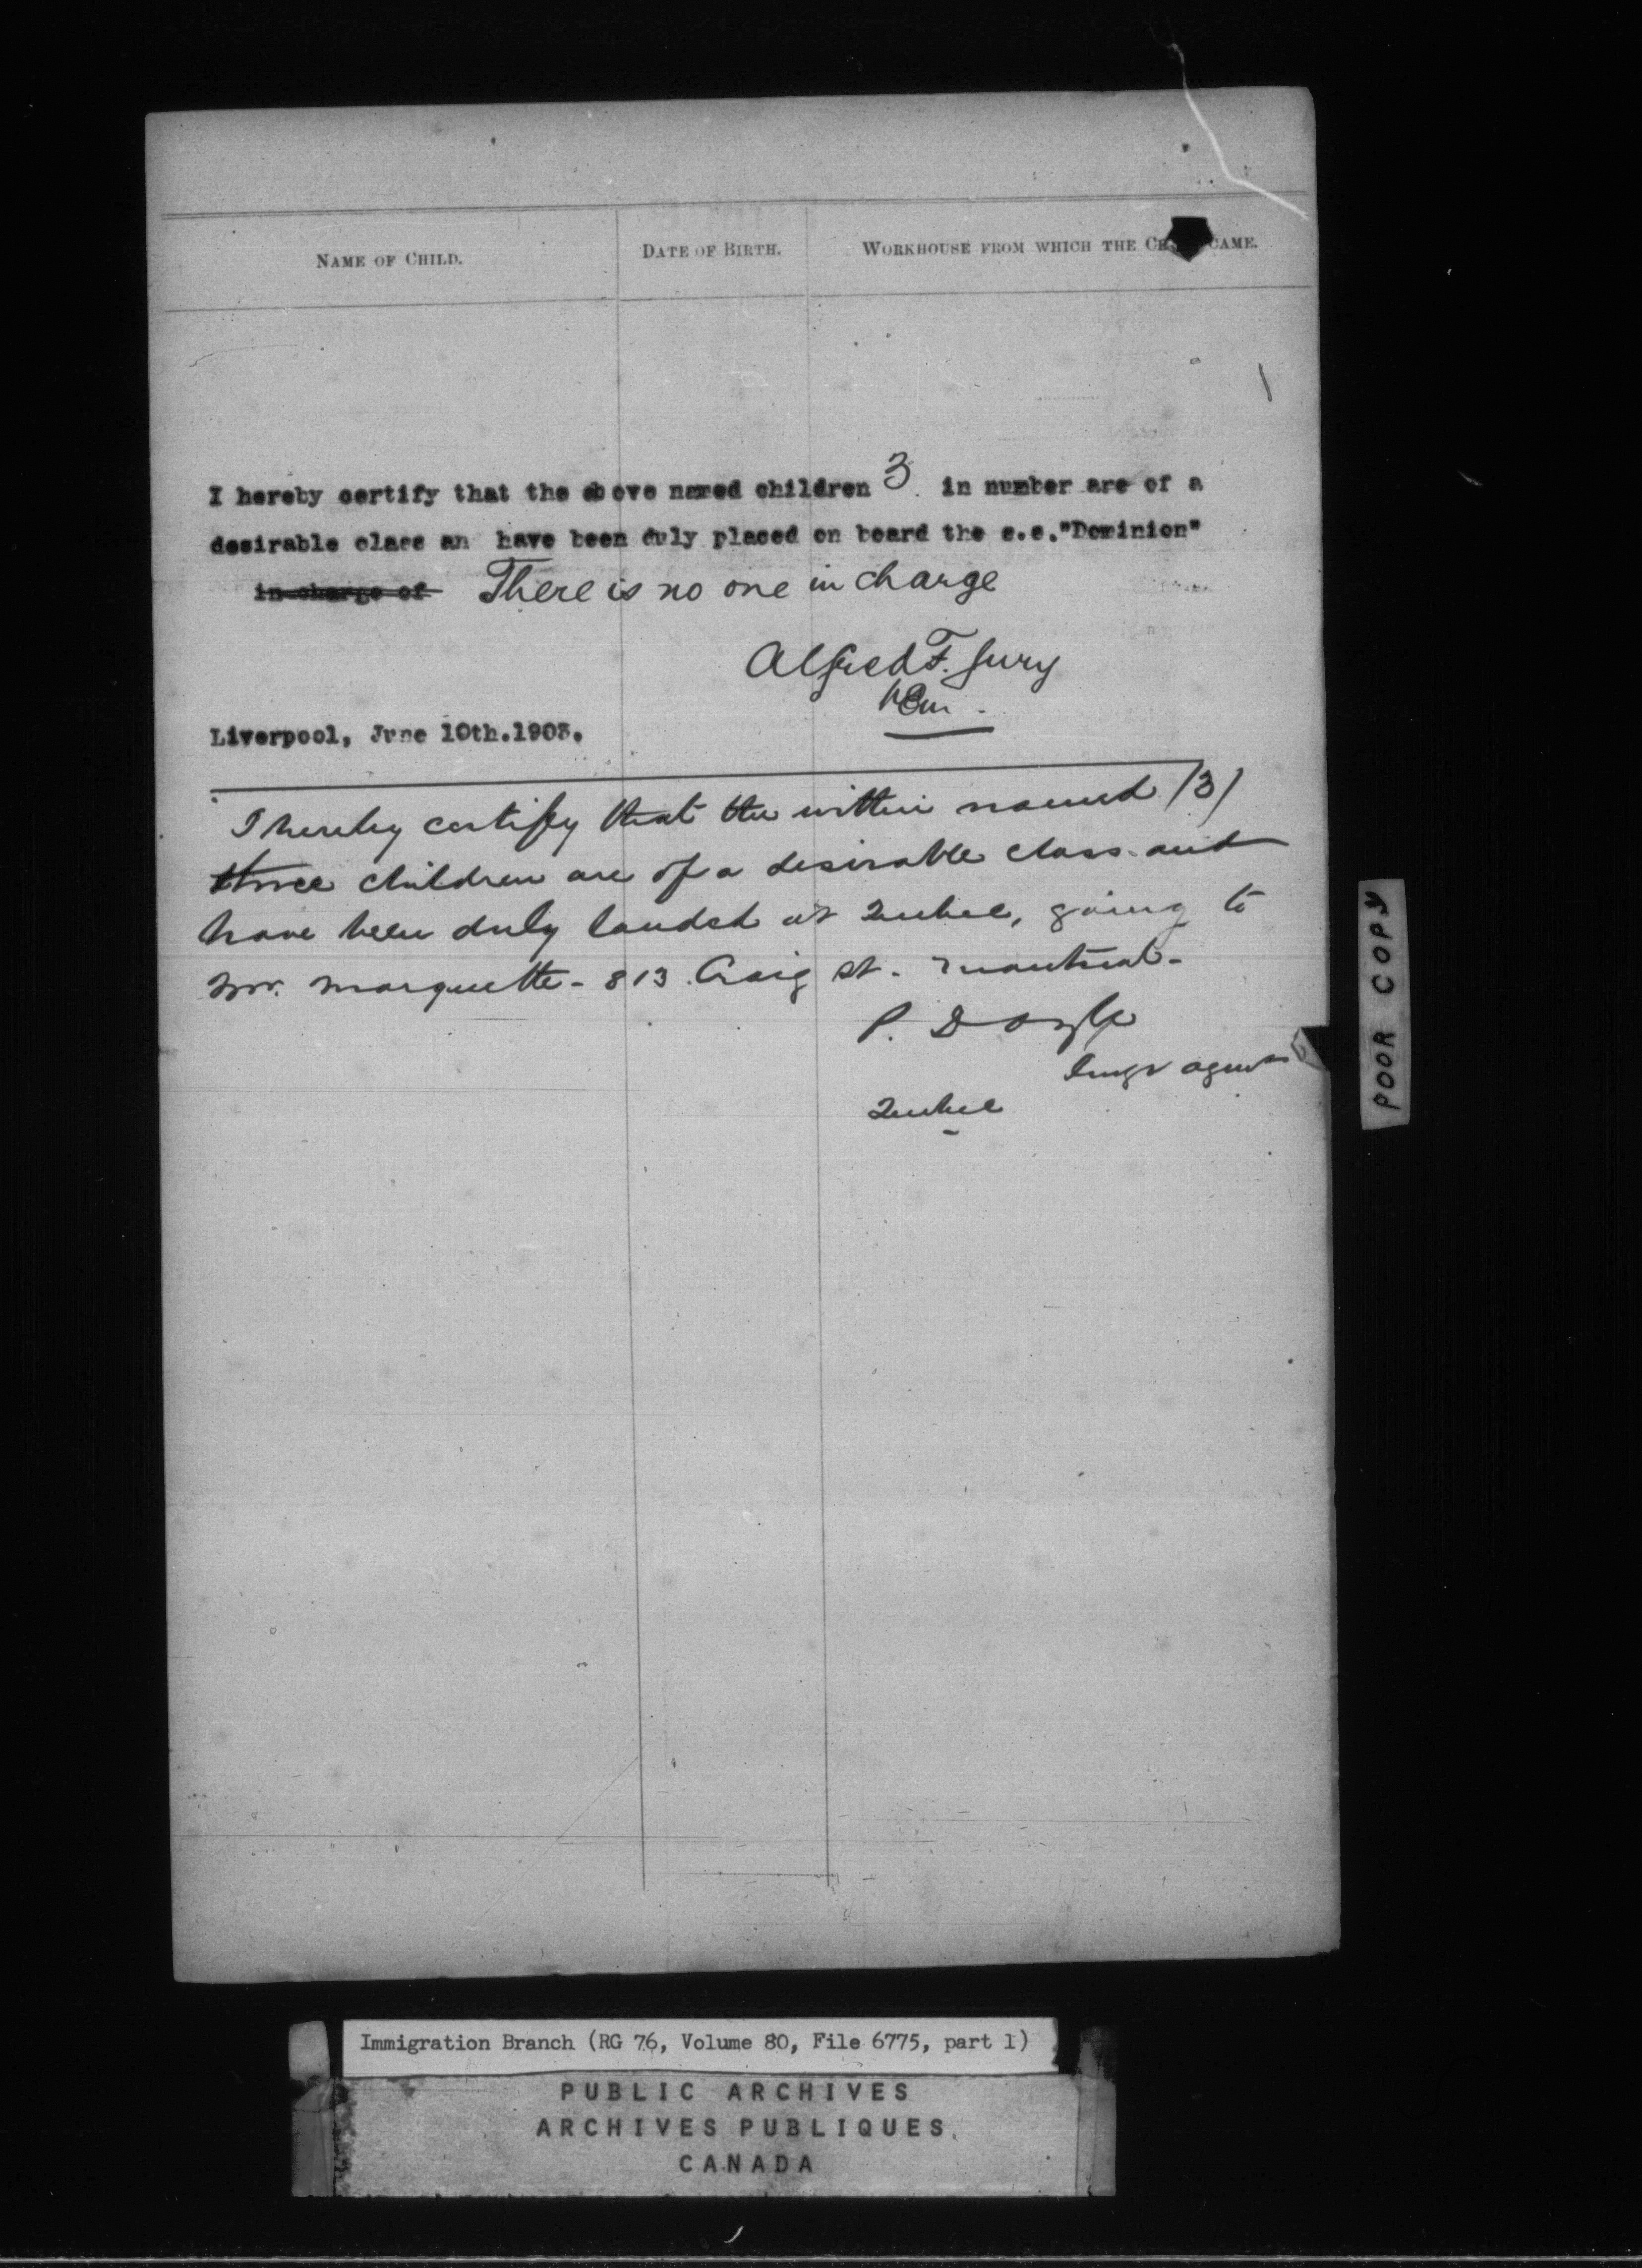 NAME OF CHILD. DATE OF BIRTH. WORKHOUSE FROM WHICH THE CH CAME.
I hereby certify that the above named children 3 in number are of a
desirable class an have been duly placed on board the s.s."Dominion"
in charge of There is no one in charge
Alfred F. Jury
Liverpool, June 10th.1903.
I hereby certify that the within named (3)
three children are of a desirable class and
have been duly landed at Quebec, going to
Mr. Marquette - 813 Craig St. Montreal -
P. Doyle
Imgr agent
Quebec
POOR COPY
Immigration Branch (RG 76, Volume 80, File 6775, part 1)
PUBLIC ARCHIVES
ARCHIVES PUBLIQUES
CANADA